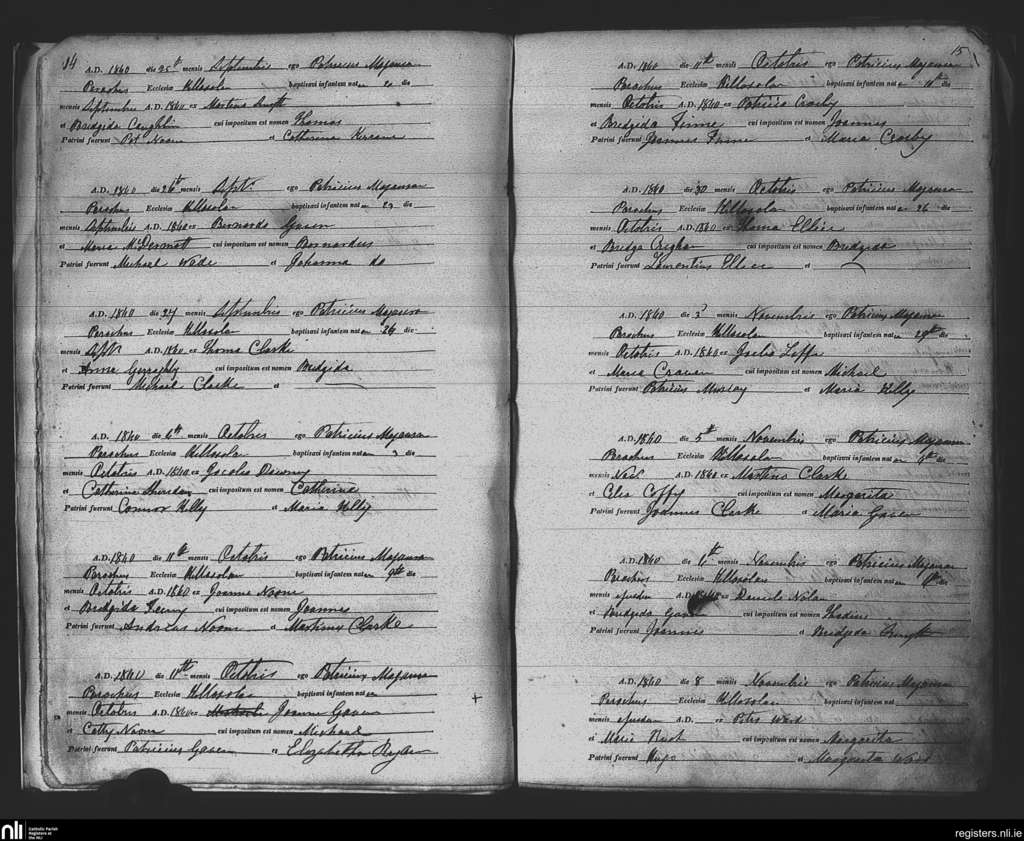 14
A.D. 1860 die 25th mensis Septembris ego Patricius
Parochus Ecclesiæ Killosolan baptisavi infantem nat 20 die
mensis Septembris A.D. 1860 ex Martino
et Bridgida Caughlin cui impositum est nomen Thomas
Patrini fuerunt Pat Noon et Catherina
A.D. 1860 die 26th mensis Sept. ego Patricius
Parochus Ecclesiæ Killosolan baptisavi infantem nat 23 die
mensis Septembris A.D. 1860 ex Bernardo Gaven
et Maria McDermott cui impositum est nomen Bernardus
Patrini fuerunt Michael Wade et Johanna do
A.D. 1860 die 27 mensis Septembris ego Patricius
Parochus Ecclesiæ Killosolan baptisavi infantem nat 26 die
mensis Septr. A.D. 1860 ex Thoma Clarke
et Anna Gerraghty cui impositum est nomen Bridgida
Patrini fuerunt Michael Clarke et
A.D. 1860 die 6th mensis Octobris ego Patricius
Parochus Ecclesiæ Killosolan baptisavi infantem nat 3 die
mensis Octobris A.D. 1860 ex Jacobo Downey
et Catherina Sheridan cui impositum est nomen Catherina
Patrini fuerunt Connor Kelly et Maria Kelly
A.D. 1860 die 11th mensis Octobris ego Patricius
Parochus Ecclesiæ Killosolan baptisavi infantem nat 9th die
mensis Octobris A.D. 1860 ex Joanne Noone
et Bridgida cui impositum est nomen Joannes
Patrini fuerunt Andreas Noone et Martinus Clarke
A.D. 1860 die 11th mensis Octobris ego Patricius
Parochus Ecclesiæ Killosolan baptisavi infantem nat
mensis Octobris A.D. 1860 ex Joanne Gaven
et Cathy Noone cui impositum est nomen Michael
Patrini fuerunt Patricius Gaven et Elizabetha Ryan
15
A.D. 1860 die 11th mensis Octobris ego Patricius
Parochus Ecclesiæ Killosolan baptisavi infantem nat 10th die
mensis Octobris A.D. 1860 ex Patricio Crosby
et Bridgida Finne cui impositum est nomen Joannes
Patrini fuerunt Joannes Finne et Maria Crosby
A.D. 1860 die 30 mensis Octobris ego Patricius
Parochus Ecclesiæ Killosolan baptisavi infantem nat 26 die
mensis Octobris A.D. 1860 ex Thoma
et Bridga cui impositum est nomen Bridgida
Patrini fuerunt Laurentius et
A.D. 1860 die 3 mensis Novembris ego Patricius
Parochus Ecclesiæ Killosolan baptisavi infantem nat 29th die
mensis Octobris A.D. 1860 ex
et Maria Craven cui impositum est nomen Michael
Patrini fuerunt Patricius et Maria Kelly
A.D. 1860 die 5th mensis Novembris ego Patricius
Parochus Ecclesiæ Killosolan baptisavi infantem nat die
mensis Nov. A.D. 1860 ex Martino Clarke
et Coffy cui impositum est nomen Margarita
Patrini fuerunt Joannes Clarke et Maria Gaven
A.D. 1860 die 6th mensis Novembris ego Patricius
Parochus Ecclesiæ Killosolan baptisavi infantem nat 6th die
mensis ejusdem A.D. 1860 ex Daniele Nolan
et Bridgida cui impositum est nomen
Patrini fuerunt Joannes et Bridgida
A.D. 1860 die 8 mensis Novembris ego Patricius
Parochus Ecclesiæ Killosolan baptisavi infantem nat
mensis ejusdem A.D. ex Petro Ward
et Maria cui impositum est nomen Margarita
Patrini fuerunt Hugo et Margarita Ward
nli
Catholic Parish
Registers at
the NLI
registers.nli.ie